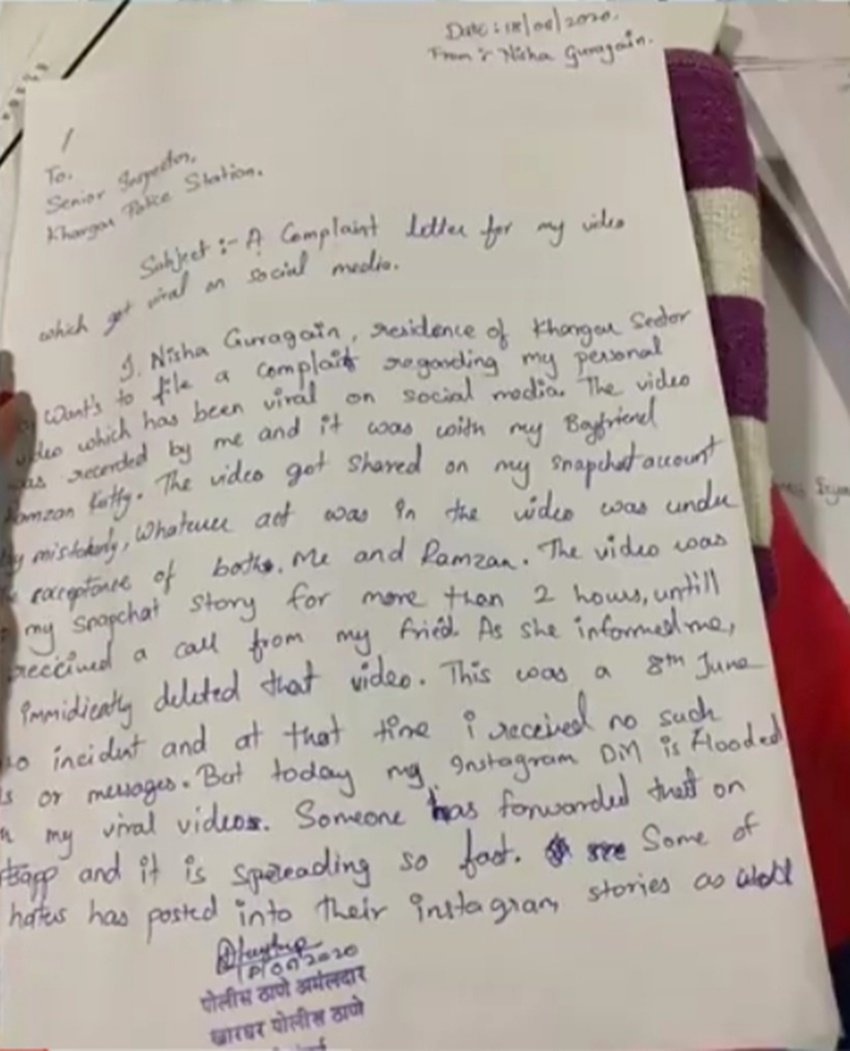 Date: 18/06/2020.
From :- Nisha Guragain.
To,
Senior Inspector,
Khargar Police Station.
Subject :- A Complaint letter for my video
which got viral on social media.
I. Nisha Guragain, residence of Khargar Sector
Want's to file a complaint regarding my personal
video which has been viral on social media. The video
was recorded by me and it was with my Boyfriend
Ramzan. The video got shared on my snapchat account
by mistakenly, Whatever act was in the video was under
acceptance of both. Me and Ramzan. The video was
my snapchat story for more than 2 hours, untill
received a call from my fried. As she informed me,
immidieatly deleted that video. This was a 8th June
incident and at that time i received no such
or messages. But today my Instagram DM is flooded
my viral videos. Someone has forwarded that on
and it is spereading so fast. Some of
haters has posted into their instagram stories as well
2020
पोलीस ठाणे अंमलदार
खारघर पोलीस ठाणे